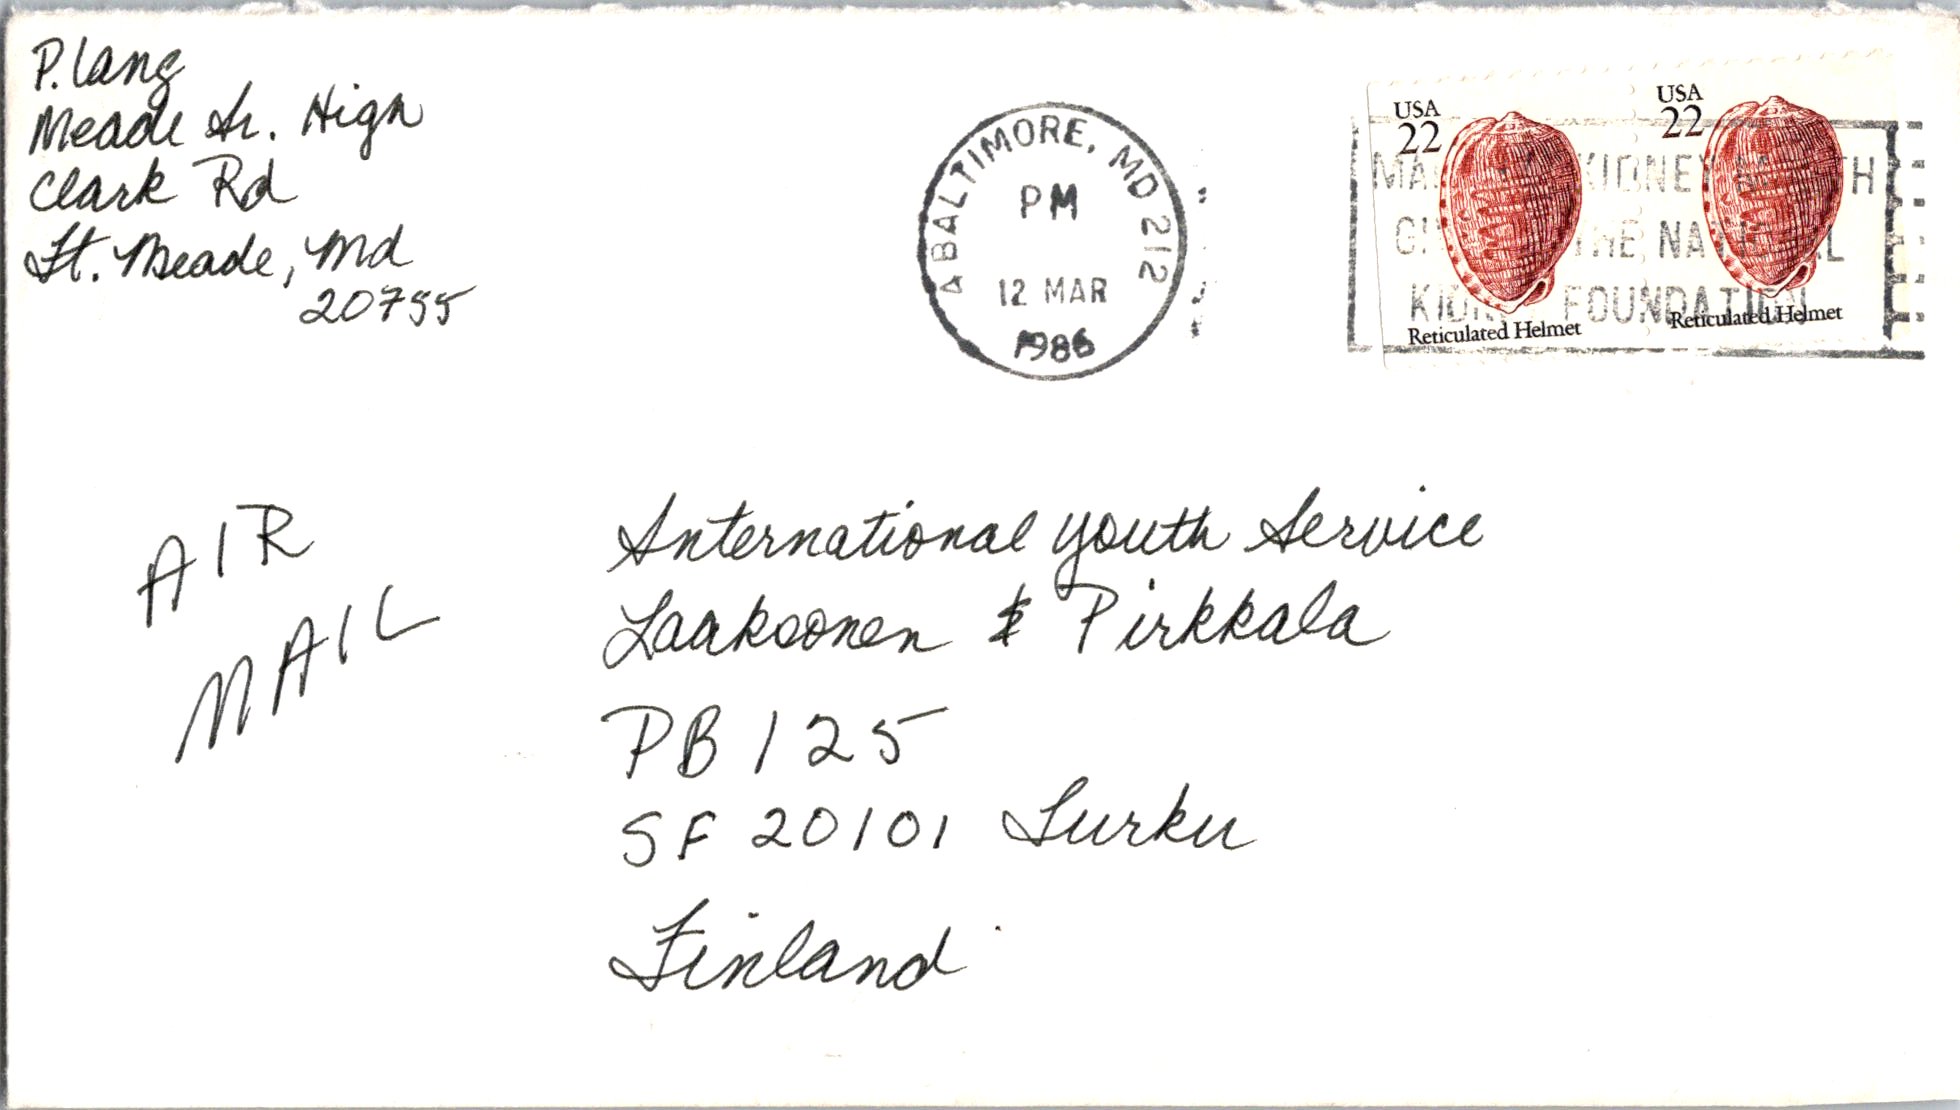 P. Lang
Meade Sr. High
Clark Rd
Ft. Meade, Md
20755
BALTIMORE, MD 212
PM
12 MAR
1986
USA
22
Reticulated Helmet
USA
22
Reticulated Helmet
KIDNEY
THE
FOUNDATION
AIR
MAIL
International Youth Service
Laaksonen & Pirkkala
PB 125
SF 20101 Turku
Finland